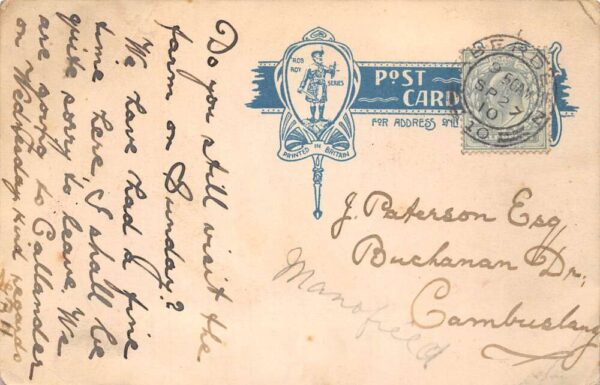 Do you still visit the
farm on Sunday?
We have had a fine
time here. I shall be
quite sorry to leave. We
are going to Callander
on Wednesday. kind regards
ROB
ROY
SERIES
PRINTED IN BRITAIN
POST
CARD
FOR ADDRESS ONLY
ABERDEEN
SP 27
10
J. Paterson Esq
Buchanan Dr.
Cambuslang
Manofield